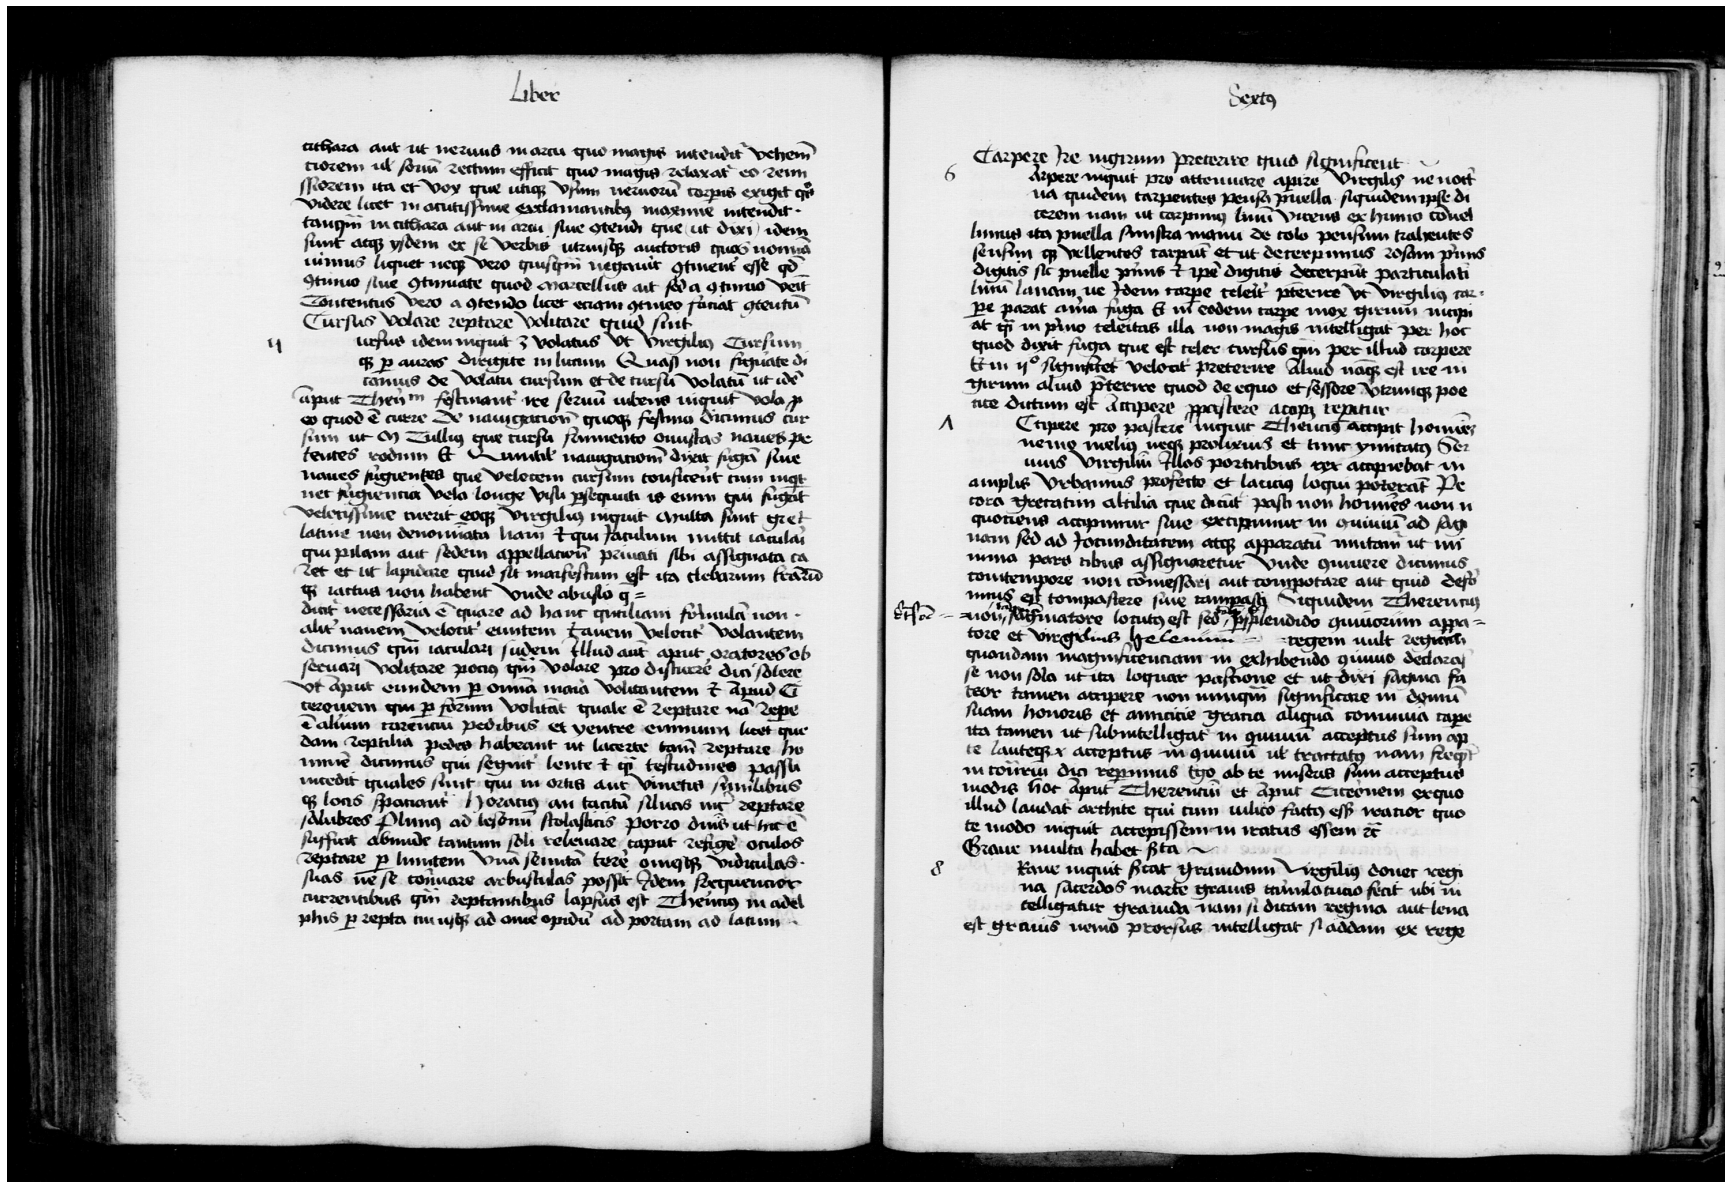 Liber
cithara aut ut neruus in arcu quo magis intendit̄ vehem̄
tiorem ul̄ sonū rectum efficit quo magis relaxat̄ eo remi
ssiorem ita et vox que utiqꝫ vsum neruorū corpis exigit
videre licet in acutissime exclamantibꝰ maxime intendit·
tanqm̄ in cithara aut in arcu siue ꝯtendi que ut dixi idem
sunt atqꝫ ysdem ex se verbis utriusqꝫ auctoris quos nomīa
uimus liquet neqꝫ vero quisqm̄ negauit ꝯtinent̄ esse qd̄
ꝯtinuo siue ꝯtinuate quod Marcellus ait sed a ꝯtinuo venit
Contentus vero a ꝯtendo licet etiam ꝯtineo faciat ꝯtentū
Cursus volare reptare volitare quid sint
ursus idem inquit ⁊ volatus ut Virgiliꝰ Cursum
qꝫ ꝑ auras dirigite in lucum Quasi non figurate di
camus de volatu cursum et de cursu volatū ut idē
aput Then̄m festinant̄ ire seruū iubens inquit vola ꝓ
eo quod ē curre De nauigation̄ quoqꝫ festina dicimus cur
sum ut M Tullius que cursū frumento onustas naues pe
tentes rodum Et nauigationem dixit fugā siue
naues fugientes que velocem cursum conficeret cum inqt
net fugiencia vela longe visu ꝑsequuti is enim qui fugit
velocissime currit eoqꝫ Virgilius inquit Multa sunt gre
latine non denominata nam ⁊ qui Jaculum mittit iaculaī
qui pilam aut sedem appellacionē priuati sibi assignata ca
ret et ut lapidare quid sit manifestum est ita glebarum
qꝫ iactus non habent vnde abusio q=
dicit necessaria ē quare ad hanc formulā non·
alit̄ nauem velocit̄ euntem ⁊ auem velocit̄ volantem
dicimus qm̄ iaculari sudem Illud aut̄ aput oratores ob
seruari volitare pocius qm̄ volare pro discurrē dici solere
ut aput eundem ꝑ omnia maria volitantem ⁊ apud Ci
ceronem qui ꝑ forum volitat̄ quale ē reptare nā repe
ē aliam carenciū pedibus et ventre euntium licet que
dam reptilia pedes habeant ut lacerte tam̄ reptare ho
mines dicimus qui segnit̄ lente ⁊ qm̄ testudineo passu
incedit quales sunt qui in ortis aut vinetis similibus
qꝫ locis spaciant̄ Horatiꝰ an tacitū siluas int̄ reptare
salubres Plinius ad scolasticis Porro dnīs ut hic ē
sufficit abunde tantum soli releuare caput refice oculos
reptare ꝑ limitem vnā semitā tere omesqꝫ viticulas·
suas nosse connumerare arbustulas possit Idem frequencior
currentibus qm̄ reptantibus lapsus est Then̄cius in adel
phis ꝑ repta cui usqꝫ ad om̄e opidū ad portam ad lacum
Sextꝰ
Carpere Ire in girum preterire quid significent
6 Arpere inquit pro attenuare apire Virgiliꝰ ne noct̄
na quidem carpentes pensa puella· siquidem ipse di
cerem nam ut carpimꝰ linū vitens ex humo conuel
limus ita puella sinistra manu de colo pensum trahentes
sensim qꝫ vellentes carpūt et ut decerpimus rosam primis
digitis sic puelle primis ⁊ ipē digitis decerpūt particulati
linū lanam ue Idem carpe celeit̄ pterire ut virgiliꝰ car·
pe parat aīma fuga Et in eodem carpe mox girum incipi
at qm̄ in primo celeritas illa non magis intelligat̄ per hoc
quod dixit fuga que est celer cursus qm̄ per illud carpere
Et in ijº significet velocit̄ preterire Aliud naqꝫ est ire in
girum aliud pterire quod de equo et sessore vtrunqꝫ poe
tice dictum est Accipere ꝓ pascere accipi repitur
Λ Ccipere pro pascere inquit Thenciꝰ accipit homies
nemo melius neqꝫ prolixius et tunc Ser
uius Virgilium Illos porticibus rex accipiebat in
amplis Vrbanius profecto et lacius loqui poterat Pe
cora gregatim altilia que dicūt pasci non homines non n
quotiens accipimur siue excipimur in ꝯuiuiū ad sagi
nam sed ad Iocunditatem atqꝫ apparatū inuitam̄ ut mi
nima pars cibus assignaretur Vnde ꝯuiuere dicimus
contempore non comessari aut compotare aut quid
mus est compascere siue compasci Siquidem Therentiꝰ
=non saginatore locutꝰ est sed splendido ꝯuiuiorum appa=
tore et Virgilius helenum regem uult regiam
quandam magnificenciam in exhibendo ꝯuiuio declarasse
se non sola ut ita loquar pastione et ut dixi sagina fa
teor tamen accipere non nunqm̄ significare in domū
suam honoris et amicicie gracia aliquā conuiuia cape
ita tamen ut subintelligat̄ in ꝯuiuiū acceptus sum ap
te lauteqꝫ acceptus in ꝯuiuiū ul̄ tractatꝰ nam
in cont̄riū dici reperimus Ego ab te miseris sum acceptus
modis hoc aput Therenciū et aput Ciceronem ex quo
illud laudat̄ archite qui cum iulico factꝰ esset iracior quo
te modo inquit accepissem ni iratus essem ⁊c̄
Graue multa habet significata
8 Raue inquit significat grauidum Virgilius donec regi
na sacerdos marte grauis fecit ubi in
telligatur grauida nam si dicam regina aut lena
est grauis nemo prorsus intelligat si addam ex rege